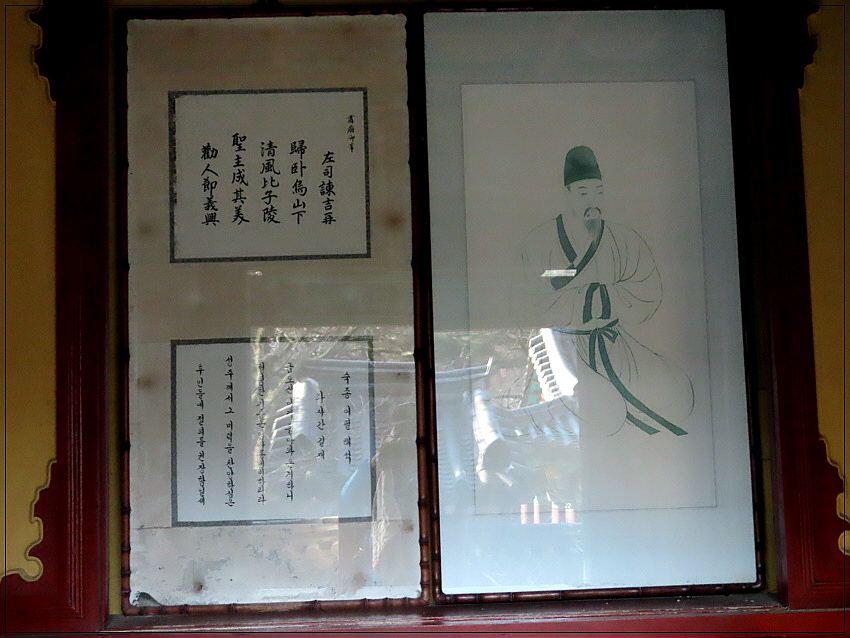 肅廟御筆
左司諫吉再
歸卧烏山下
淸風比子陵
聖主成其美
勸人節義興
숙종 어필 해석
좌사간 길재
금오산
성주께서 그 미덕을 찬양하심은
후인들에 절의를 권장함일세